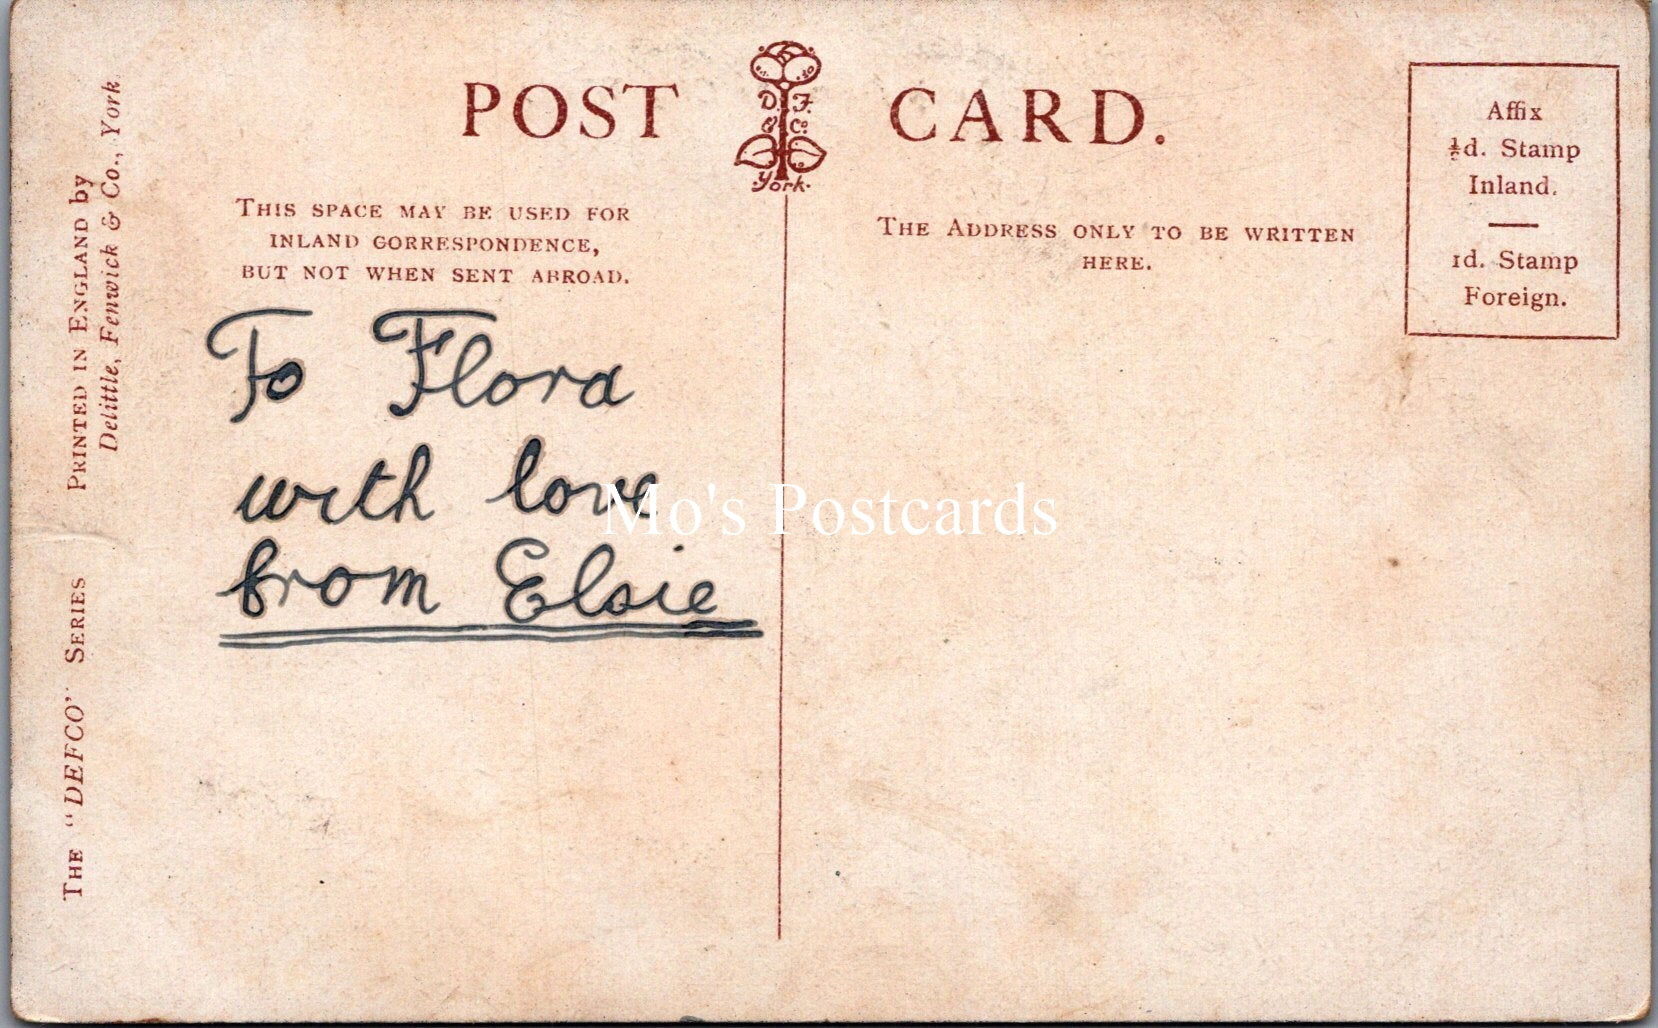 POST CARD.
D. F.
& Co.
York.
THIS SPACE MAY BE USED FOR
INLAND CORRESPONDENCE,
BUT NOT WHEN SENT ABROAD.
THE ADDRESS ONLY TO BE WRITTEN
HERE.
Affix
½d. Stamp
Inland.
1d. Stamp
Foreign.
To Flora
with love
from Elsie
Mo's Postcards
THE "DEFCO" SERIES PRINTED IN ENGLAND by
Delittle, Fenwick & Co., York